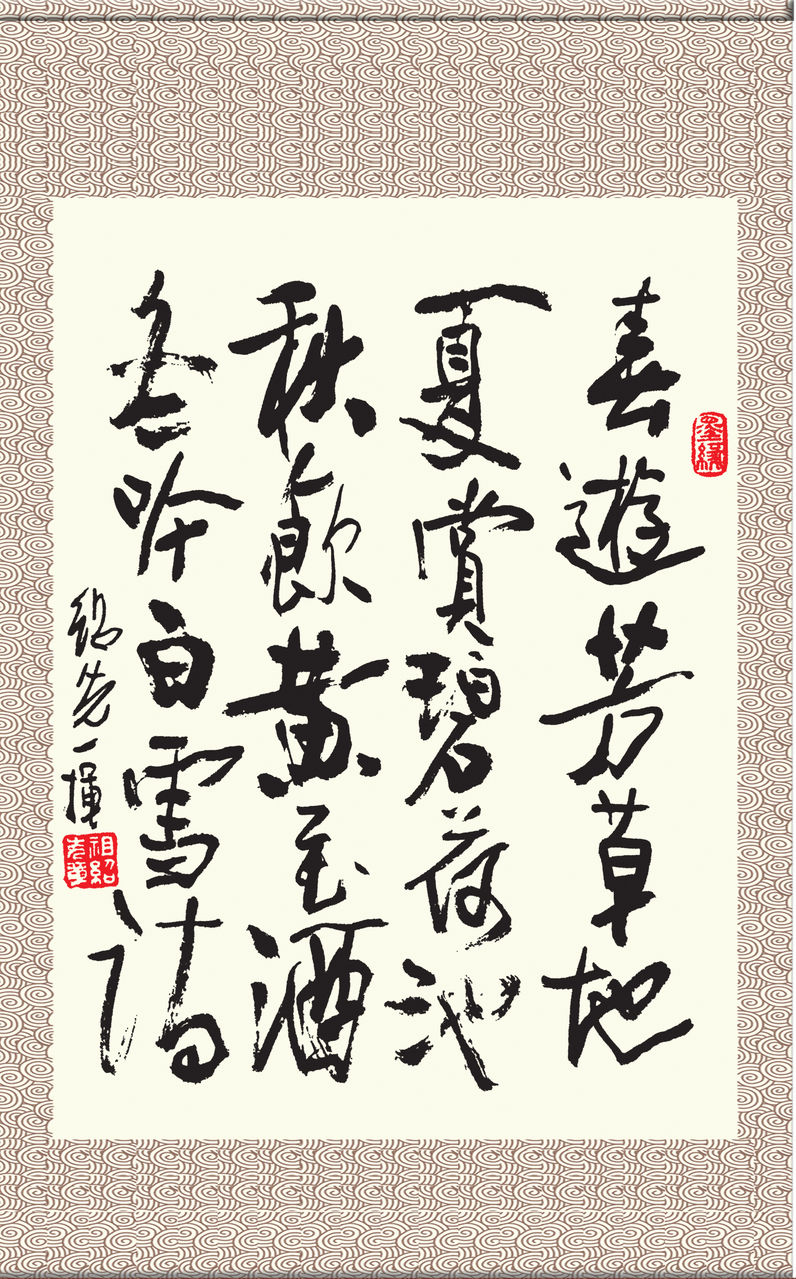 墨緣
春遊芳草地
夏賞碧荷池
秋飲黄花酒
冬吟白雪詩
紹先一揮